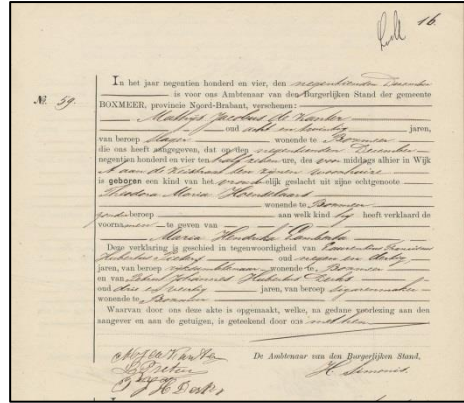 16.
No. 59.
In het jaar negentien honderd en vier, den negentienden December
is voor ons Ambtenaar van den Burgerlijken Stand der gemeente
BOXMEER, provincie Noord-Brabant, verschenen:
Mathijs Jacobus de Kanter
oud acht en twintig jaren,
van beroep slager wonende te Boxmeer
die ons heeft aangegeven, dat op den negentienden December
negentien honderd en vier ten half zeven ure, des voor middags alhier in Wijk
A aan de ten zijnen woonhuize
is geboren een kind van het vrouwelijk geslacht uit zijne echtgenoote
Theodora Maria
wonende te Boxmeer
zonder beroep aan welk kind zij heeft verklaard de
voornamen te geven van
Maria Hendrika Lamberta
Deze verklaring is geschied in tegenwoordigheid van Laurentius Franciscus
Hubertus oud negen en dertig
jaren, van beroep wonende te Boxmeer
en van Johannes Hubertus Derks
oud drie en veertig jaren, van beroep sigarenmaker
wonende te Boxmeer
Waarvan door ons deze akte is opgemaakt, welke, na gedane voorlezing aan den
aangever en aan de getuigen, is geteekend door ons met hen.
De Ambtenaar van den Burgerlijken Stand,
H Simonis.
H Derks